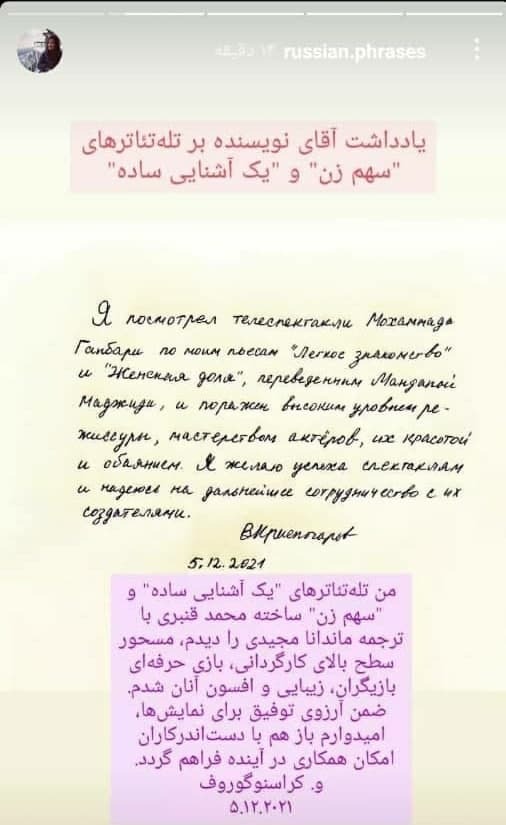 russian.phrases ۱۳ دقیقه
یادداشت آقای نویسنده بر تله‌تئاترهای
"سهم زن" و "یک آشنایی ساده"
Я посмотрел телеспектакли Мохаммада
Ганбари по моим пьесам "Легкое знакомство"
и "Женская доля", переведенным Манданой
Маджиди, и поражен высоким уровнем ре-
жиссуры, мастерством актёров, их красотой
и обаянием. Я желаю успеха спектаклям
и надеюсь на дальнейшее сотрудничество с их
создателями.
В.Красногоров
5.12.2021
من تله‌تئاترهای "یک آشنایی ساده" و
"سهم زن" ساخته محمد قنبری با
ترجمه ماندانا مجیدی را دیدم، مسحور
سطح بالای کارگردانی، بازی حرفه‌ای
بازیگران، زیبایی و افسون آنان شدم.
ضمن آرزوی توفیق برای نمایش‌ها،
امیدوارم باز هم با دست‌اندرکاران
امکان همکاری در آینده فراهم گردد.
و. کراسنوگوروف
۵.۱۲.۲۰۲۱